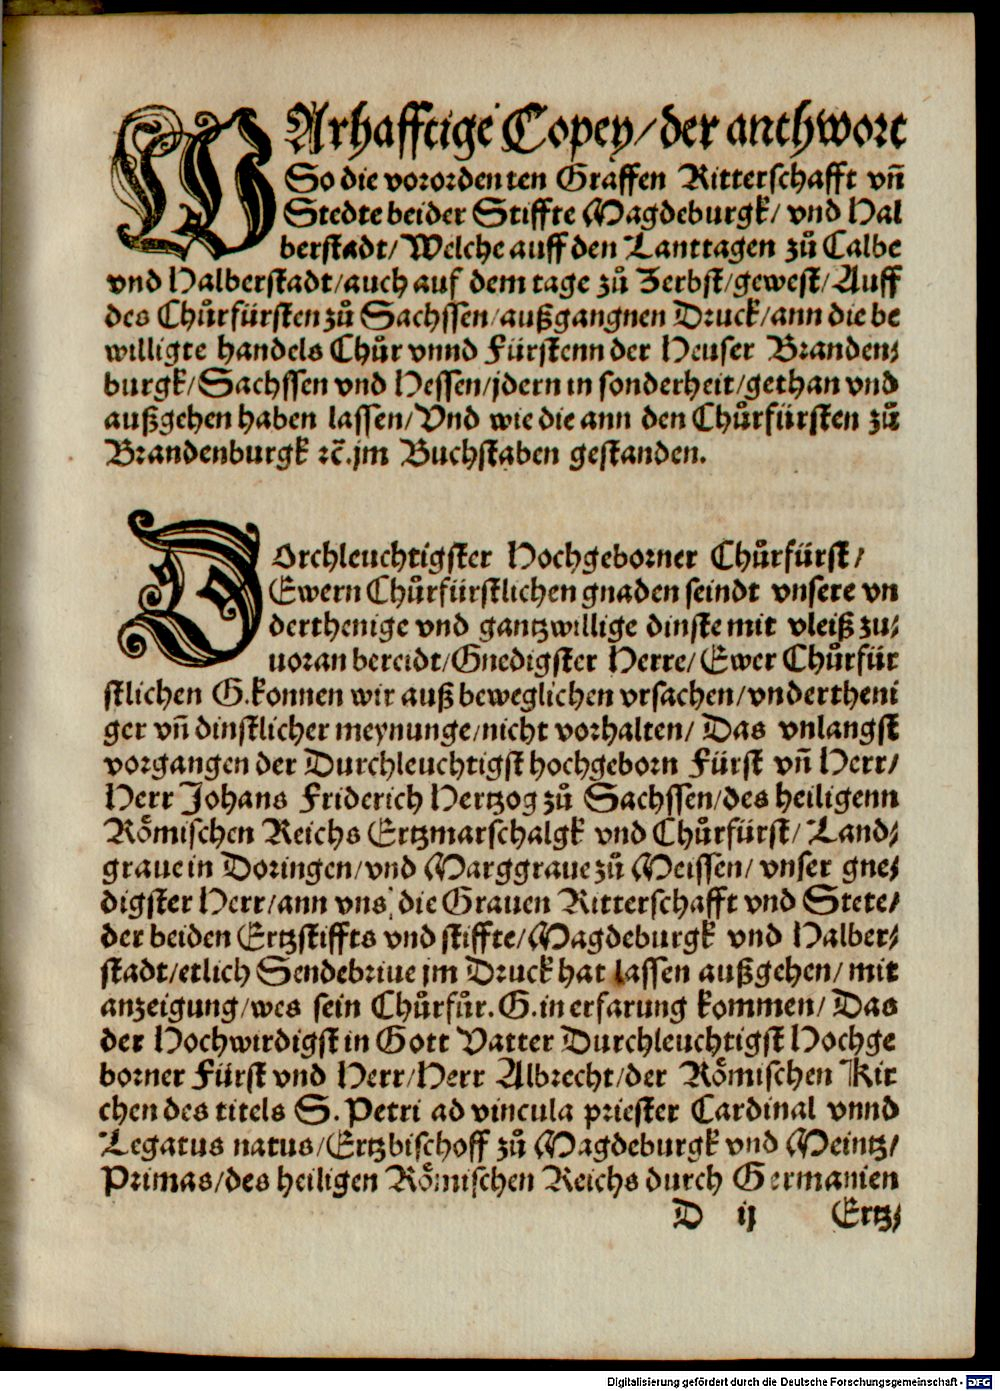 WArhafftige Copey/der anthwort
So die vorordenten Graffen Ritterschafft vn̄
Stedte beider Stiffte Magdeburgk/ vnd Hal
berstadt/ Welche auff den Lanttagen zů Calbe
vnd Halberstadt/auch auf dem tage zů Zerbst/gewest/Auff
des Chůrfürsten zů Sachssen/außgangnen Druck/ann die be
willigte handels Chůr vnnd Fürstenn der Heuser Branden/
burgk/Sachssen vnd Hessen/jdern in sonderheit/gethan vnd
außgehen haben lassen/Vnd wie die ann den Chůrfürsten zů
Brandenburgk ꝛc̄.jm Buchstaben gestanden.
DOrchleuchtigster Hochgeborner Chůrfürst/
Ewern Chůrfürstlichen gnaden seindt vnsere vn
derthenige vnd gantzwillige dinste mit vleiß zu/
uoran bereidt/Gnedigster Herre/Ewer Chůrfür
stlichen G.konnen wir auß beweglichen vrsachen/vndertheni
ger vn̄ dinstlicher meynunge/nicht vorhalten/ Das vnlangst
vorgangen der Durchleuchtigst hochgeborn Fürst vn̄ Herr/
Herr Johans Friderich Hertzog zů Sachssen/des heiligenn
Römischen Reichs Ertzmarschalgk vnd Chůrfürst/ Land/
graue in Doringen/vnd Marggraue zů Meissen/ vnser gne/
digster Herr/ann vns, die Grauen Ritterschafft vnd Stete/
der beiden Ertzstiffts vnd stiffte/Magdeburgk vnd Halber/
stadt/etlich Sendebriue jm Druck hat lassen außgehen/ mit
anzeigung/wes sein Chůrfůr. G.in erfarung kommen/ Das
der Hochwirdigst in Gott Vatter Durchleuchtigst Hochge
borner Fürst vnd Herr/Herr Albrecht/der Römischen Kir
chen des titels S. Petri ad vincula priester Cardinal vnnd
Legatus natus/Ertzbischoff zů Magdeburgk vnd Meintz/
Primas/des heiligen Römischen Reichs durch Germanien
D ij Ertz/
Digitalisierung gefördert durch die Deutsche Forschungsgemeinschaft - DFG